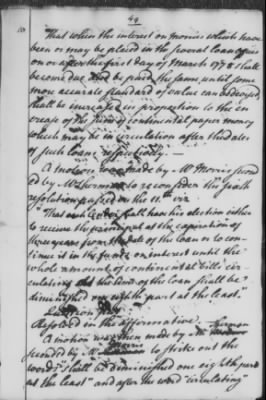 49
That when the interest on monies which have
been or may be placed in the several loan offices
on or after the first day of March 1778 shall
become due and be paid the same, until some
more accurate standard of value can be devised,
shall be increased in proportion to the in
crease of the sum of continental paper money
which may be in circulation after the dates
of such loans respectively. —
A motion was made by Mr Morris second
ed by Mr Sherman to reconsider the sixth
resolution passed in the 11th viz
That each lender shall have his election either
to receive his principal at the expiration of
three years from the date of the loan or to con
tinue it in the funds on interest until the
whole amount of continental bills circu
lating at the time of the loan shall be
diminished one eighth part at the least."
Question put,
Resolved in the affirmative.
A motion was then made by Mr Sherman
seconded by Mr Morris to strike out the
words "shall be diminished one eighth part
at the least" and after the word "circulating"